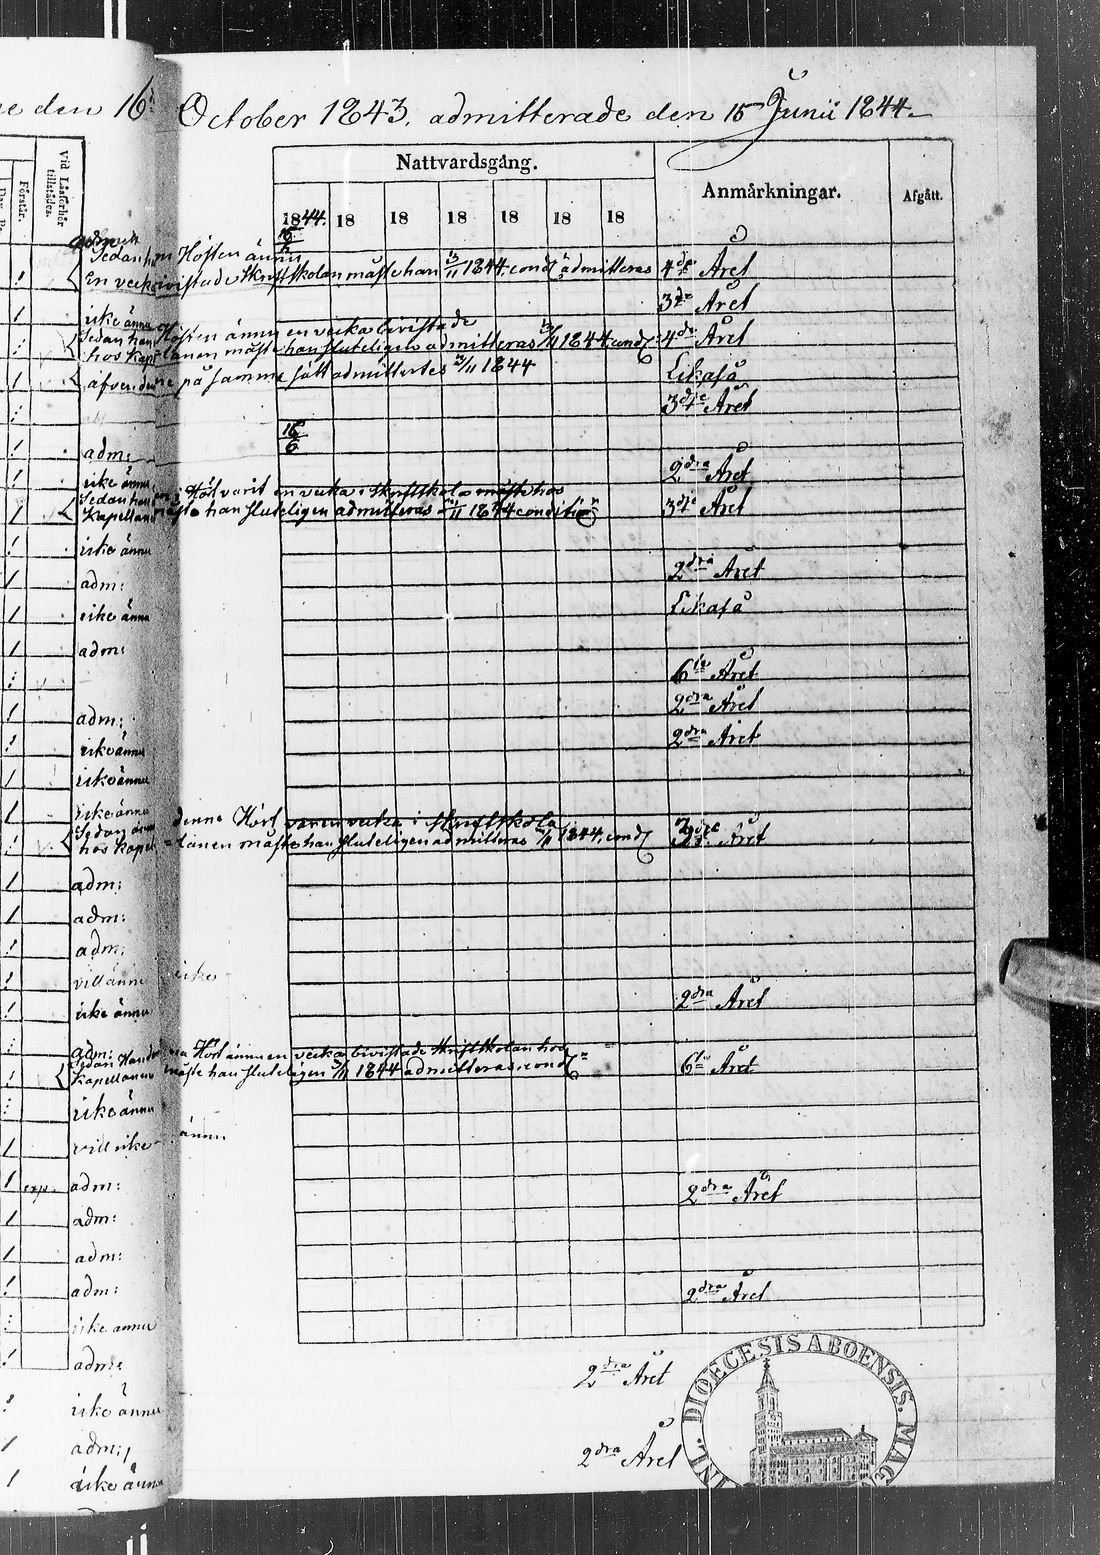 den 16 October 1843. admitterade den 15 Junii 1844.
vid Läsförhör tillstädes.
Förstår.
Nattvardsgång.
Anmärkningar.
Afgått.
1844. 18 18 18 18 18 18
Sedan han Hösten ännu
En vecka bivistade Skriftskolan måste han 1844 cond admitteras 4de Året
3dje Året
icke ännu
Sedan han Hösten ännu en vecka bivistade
hos Kapellanen måste han sluteligen admitteras 1844 cond: 4de Året
äfven denne på samma sätt admittertes 1844 Likaså
3dje Året
15/6
adm:
icke ännu 2dra Året
Sedan han i Höst varit en vecka i Skriftskola måste hos
Kapellanen måste han sluteligen admitteras 1844 condition 3dje Året
icke ännu
adm: 2dra Året
icke ännu Likaså
adm:
6te Året
adm: 2dra Året
icke ännu 2dra Året
icke ännu
icke ännu
Sedan denne Höst varit en vecka i Skriftskola
hos Kapellanen måste han sluteligen admitteras 1844, cond Året
adm:
adm:
adm:
vill ännu icke
icke ännu 2dra Året
adm:
Sedan Höst ännu en vecka bivistade Skriftskolan hos
Kapellanen måste han sluteligen 1844 admitteras cond 6te Året
icke ännu
vill icke ännu
exp. adm: 2dra Året
adm:
adm:
adm: 2dra Året
icke ännu
adm: 2dra Året
icke ännu
adm: 2dra Året
icke ännu
DIOECESIS ABOENSIS. MAG